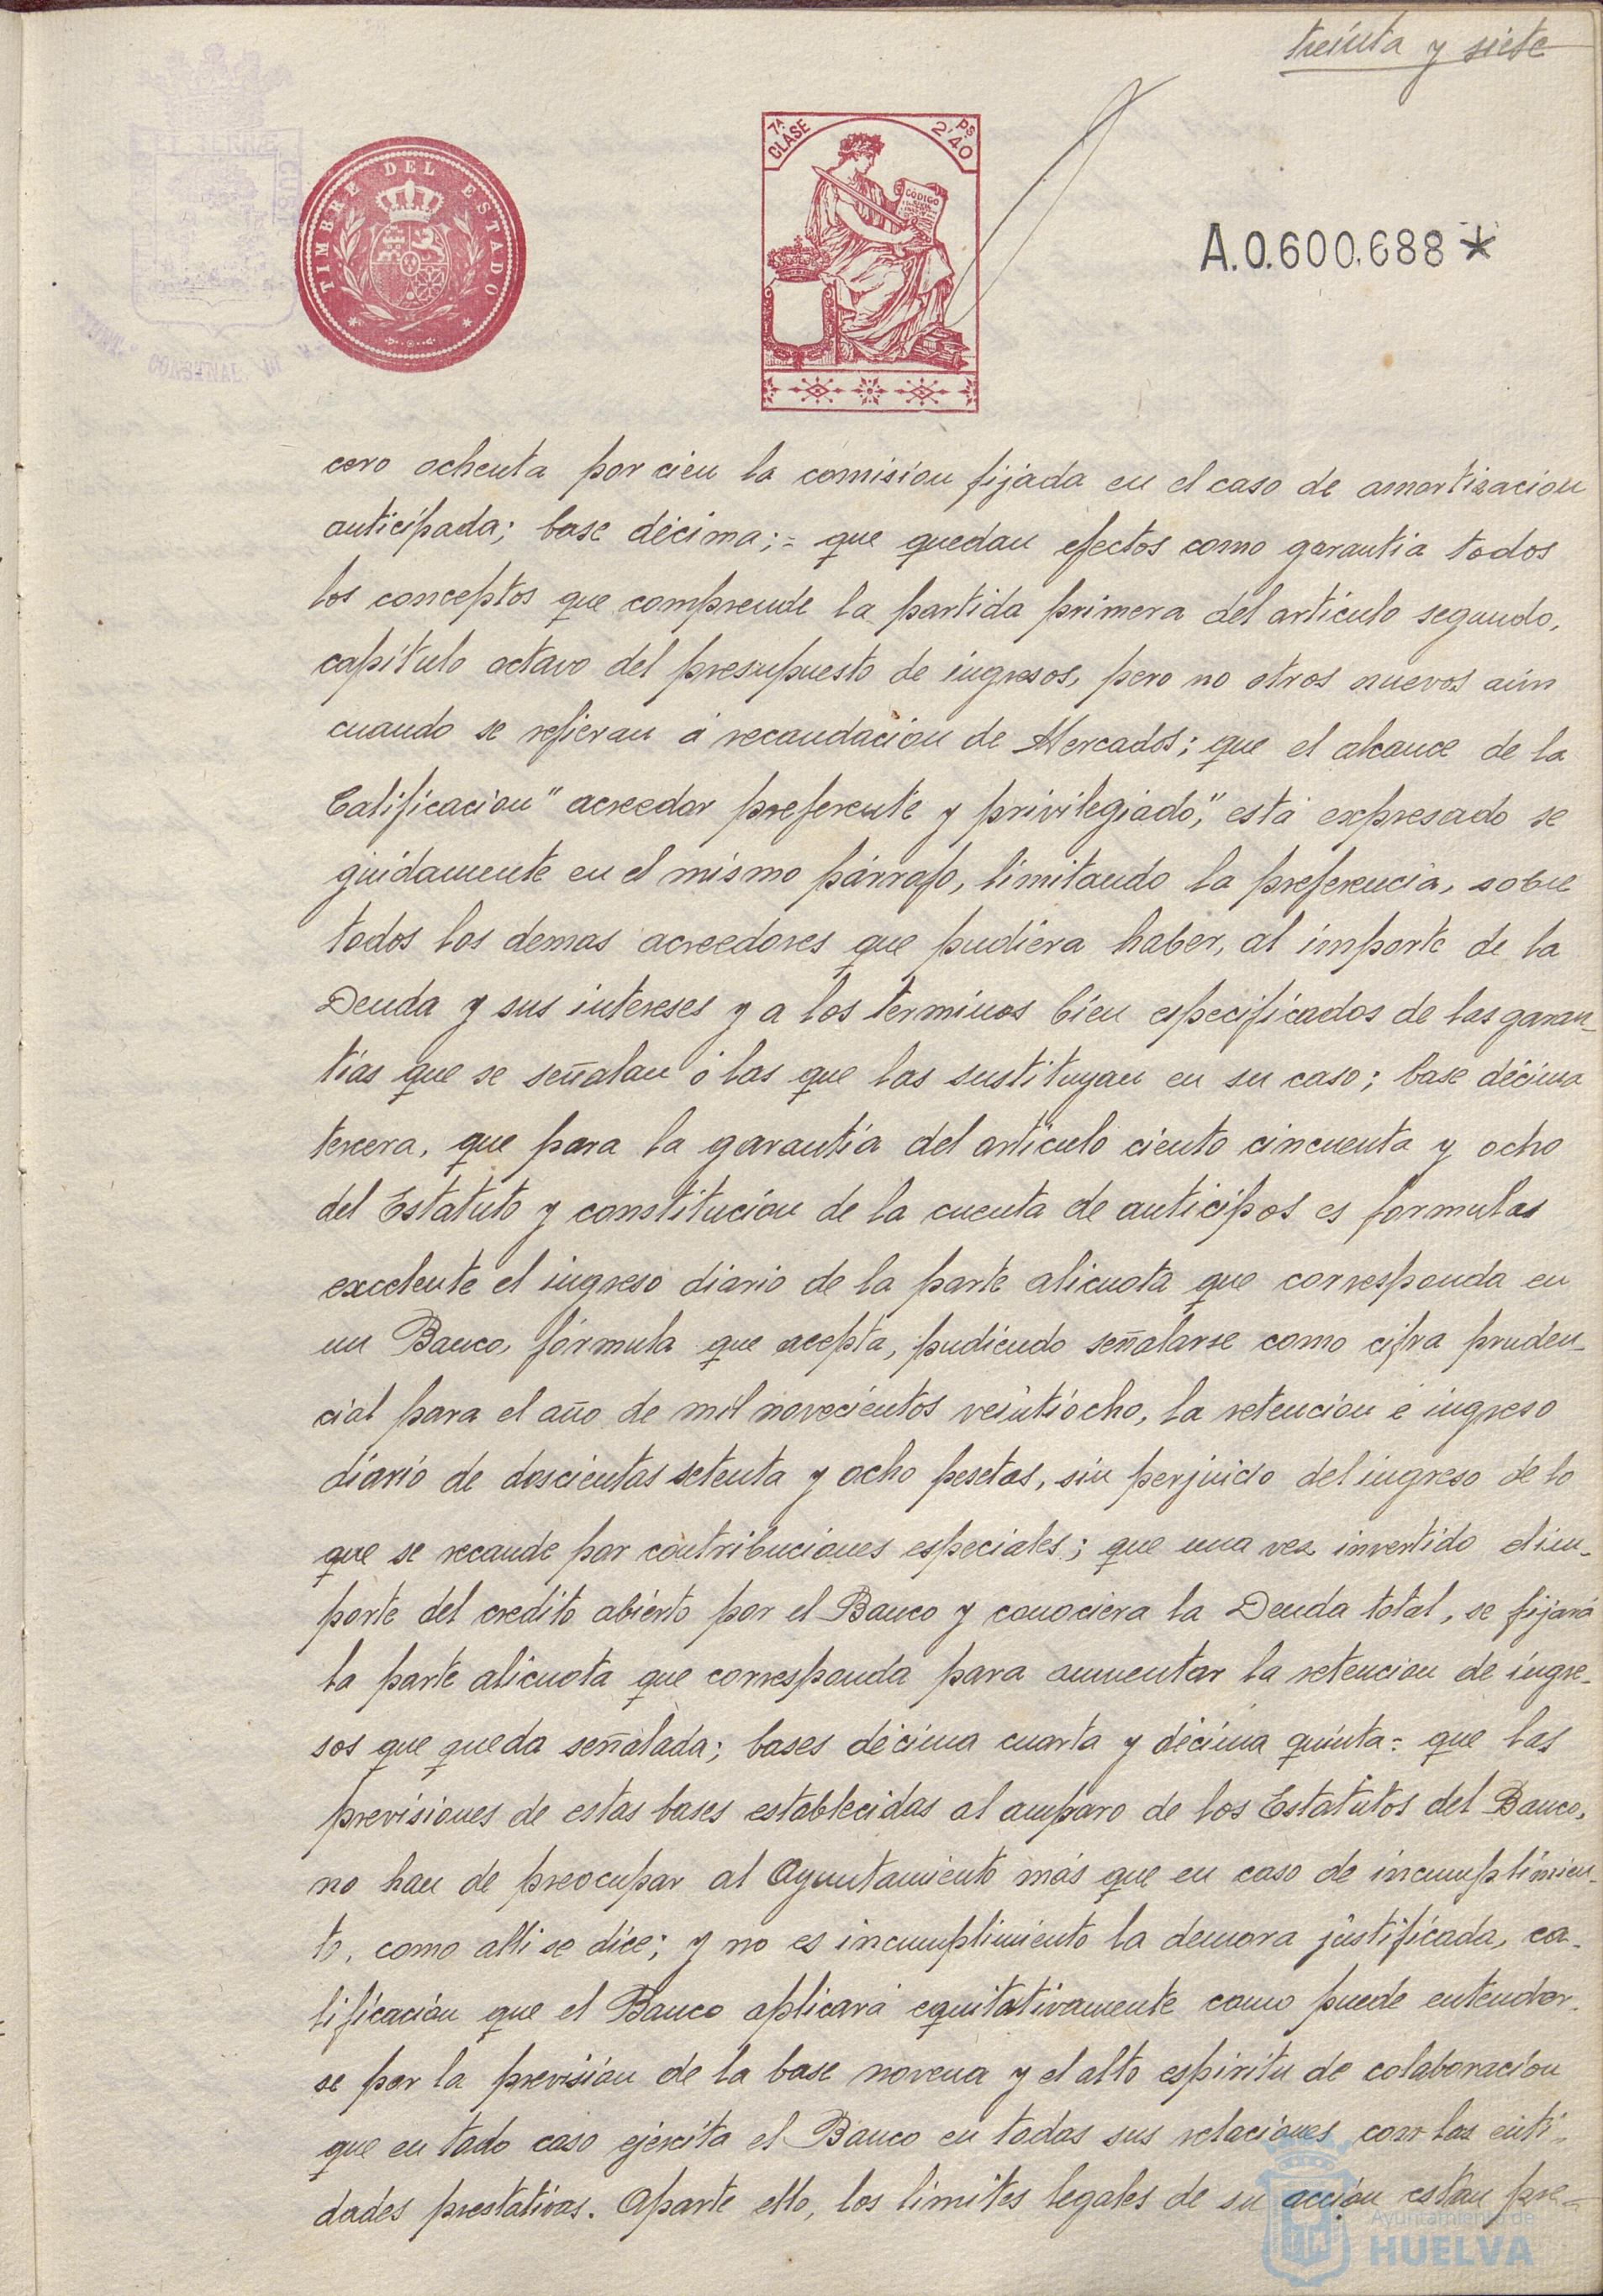 treinta y siete
TIMBRE DEL ESTADO
7ª CLASE
2'40 PS
CÓDIGO
A.0.600.688*
cero ochenta por cien la comision fijada en el caso de amortizacion
anticipada; base décima;= que quedan efectos como garantia todos
los conceptos que comprende la partida primera del artículo segundo,
capítulo octavo del presupuesto de ingresos, pero no otros nuevos aún
cuando se refieran á recaudación de Mercados; que el alcance de la
Calificacion "acreedor preferente y privilegiado," está expresado se
guidamente en el mismo párrafo, limitando la preferencia, sobre
todos los demas acreedores que pudiera haber, al importe de la
Deuda y sus intereses y a los terminos bien especificados de las garan_
tías que se señalan ó las que las sustituyan en su caso; base décima
tercera, que para la garantía del artículo ciento cincuenta y ocho
del Estatuto y constitución de la cuenta de anticipos es formulas
excelente el ingreso diario de la parte alicuota que corresponda en
un Banco, fórmula que acepta, pudiendo señalarse como cifra pruden_
cial para el año de mil novecientos veintiocho, la retencion é ingreso
diario de doscientas setenta y ocho pesetas, sin perjuicio del ingreso de lo
que se recaude por contribuciones especiales; que una vez invertido el im_
porte del credito abierto por el Banco y conociera la Deuda total, se fijará
la parte alicuota que corresponda para aumentar la retencion de ingre_
sos que queda señalada; bases décima cuarta y décima quinta= que las
previsiones de estas bases establecidas al amparo de los Estatutos del Banco,
no han de preocupar al Ayuntamiento más que en caso de incumplimien_
to, como alli se dice; y no es incumplimiento la demora justificada, ca_
lificación que el Banco aplicará equitativamente como puede entender_
se por la previsión de la base novena y el alto espiritu de colaboración
que en todo caso ejercita el Banco en todas sus relaciones con las enti_
dades prestativas. Aparte ello, los límites legales de su acción estan pre_
Ayuntamiento de
HUELVA